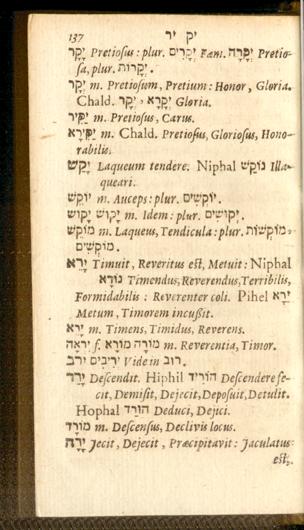 137 יק יר
יָקָר Pretiosus: plur. יְקָרִים Fœm. יְקָרָה Pretio-
sa, plur. יְקָרוֹת.
יְקָר m. Pretiosum, Pretium: Honor, Gloria.
Chald. יְקָרָא, יְקָר Gloria.
יַקִּיר m. Pretiosus, Carus.
יַקִּירָא m. Chald. Pretiosus, Gloriosus, Hono-
rabilis.
יָקַשׁ Laqueum tendere. Niphal נוֹקַשׁ Illa-
queari.
יוֹקֵשׁ m. Auceps: plur. יוֹקְשִׁים.
יָקוֹשׁ יָקוּשׁ m. Idem: plur. יְקוּשִׁים.
מוֹקֵשׁ m. Laqueus, Tendicula: plur. מוֹקְשׁוֹת
מוֹקְשִׁים.
יָרֵא Timuit, Reveritus est, Metuit: Niphal
נוֹרָא Timendus, Reverendus, Terribilis,
Formidabilis: Reverenter coli. Pihel יֵרֵא
Metum, Timorem incussit.
יָרֵא m. Timens, Timidus, Reverens.
יִרְאָה f. מוֹרָא מוֹרָה m. Reverentia, Timor.
יָרִיב יְרִיבִים Vide in רוּב.
יָרַד Descendit. Hiphil הוֹרִיד Descendere fe-
cit, Demisit, Dejecit, Deposuit, Detulit.
Hophal הוּרַד Deduci, Dejici.
מוֹרָד m. Descensus, Declivis locus.
יָרָה Jecit, Dejecit, Præcipitavit: Jaculatus
est;